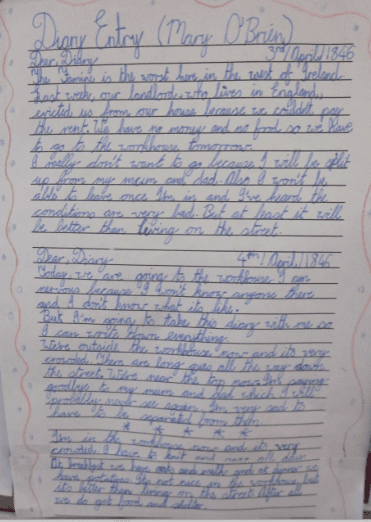 Diary Entry (Mary O'Brien)
Dear, Diary 3rd/April/1846
The Famine is the worst here in the west of Ireland
Last week, our landlord who lives in England,
evicted us from our house because we couldn't pay
the rent. We have no money and no food so we have
to go to the workhouse tomorrow.
I really don't want to go because I will be split
up from my mum and dad. Also I won't be
able to leave once I'm in and I've heard the
conditions are very bad. But at least it will
be better than living on the street.
Dear, Diary 4th/April/1846
Today we are going to the workhouse I am
nervous because I don't know anyone there
and I don't know what its like.
But I'm going to take this diary with me so
I can write down everything.
We're outside the workhouse now and its very
crowded. There are long ques all the way down
the street. We're near the top now. I'm saying
goodbye to my mum and dad which I will
probably never see again. I'm very sad to
have to be separated from them.
* * * * *
I'm in the workhouse now and its very
crowded. I have to knit and all day.
At breakfast we have oats and milk and at dinner we
have potatoes. Its not nice in the workhouse, but
its better than living on the street. After all
we do get food and shelter.